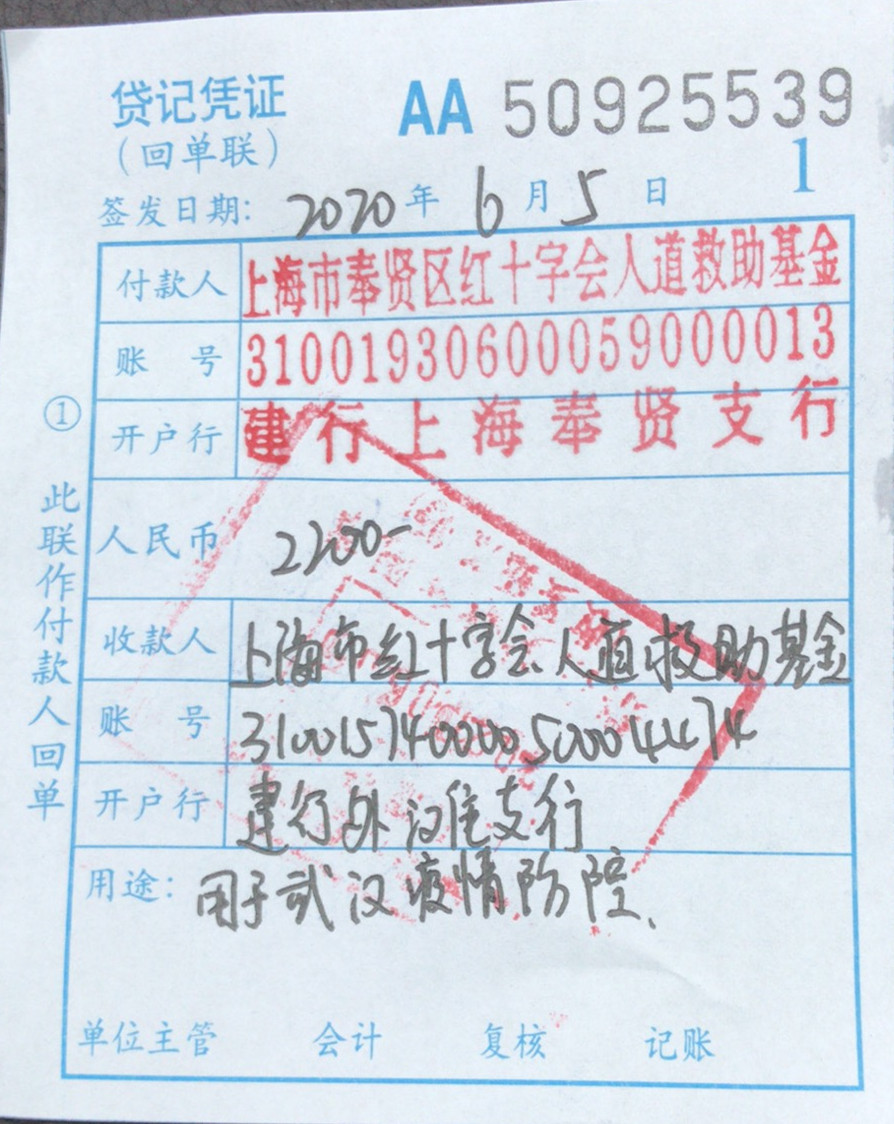 贷记凭证 AA 50925539
（回单联） 1
签发日期: 2020年6月5日
付款人 上海市奉贤区红十字会人道救助基金
账号 31001930600059000013
开户行 建行上海奉贤支行
人民币 2200-
收款人 上海市红十字会人道救助基金
账号 31001574000050004474
开户行 建行外滩支行
用途: 用于武汉疫情防控.
单位主管 会计 复核 记账
① 此联作付款人回单